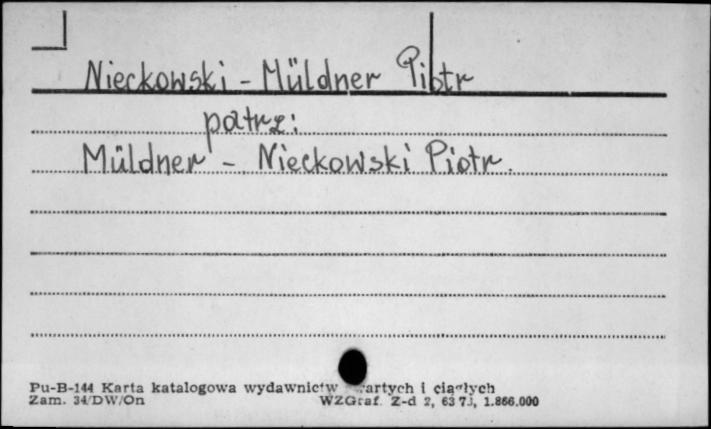 Nieckowski - Müldner Piotr
patrz:
Müldner - Nieckowski Piotr.
Pu-B-144 Karta katalogowa wydawnictw i ciągłych
Zam. 34/DW/On WZGraf. Z-d 2, 1.866.000